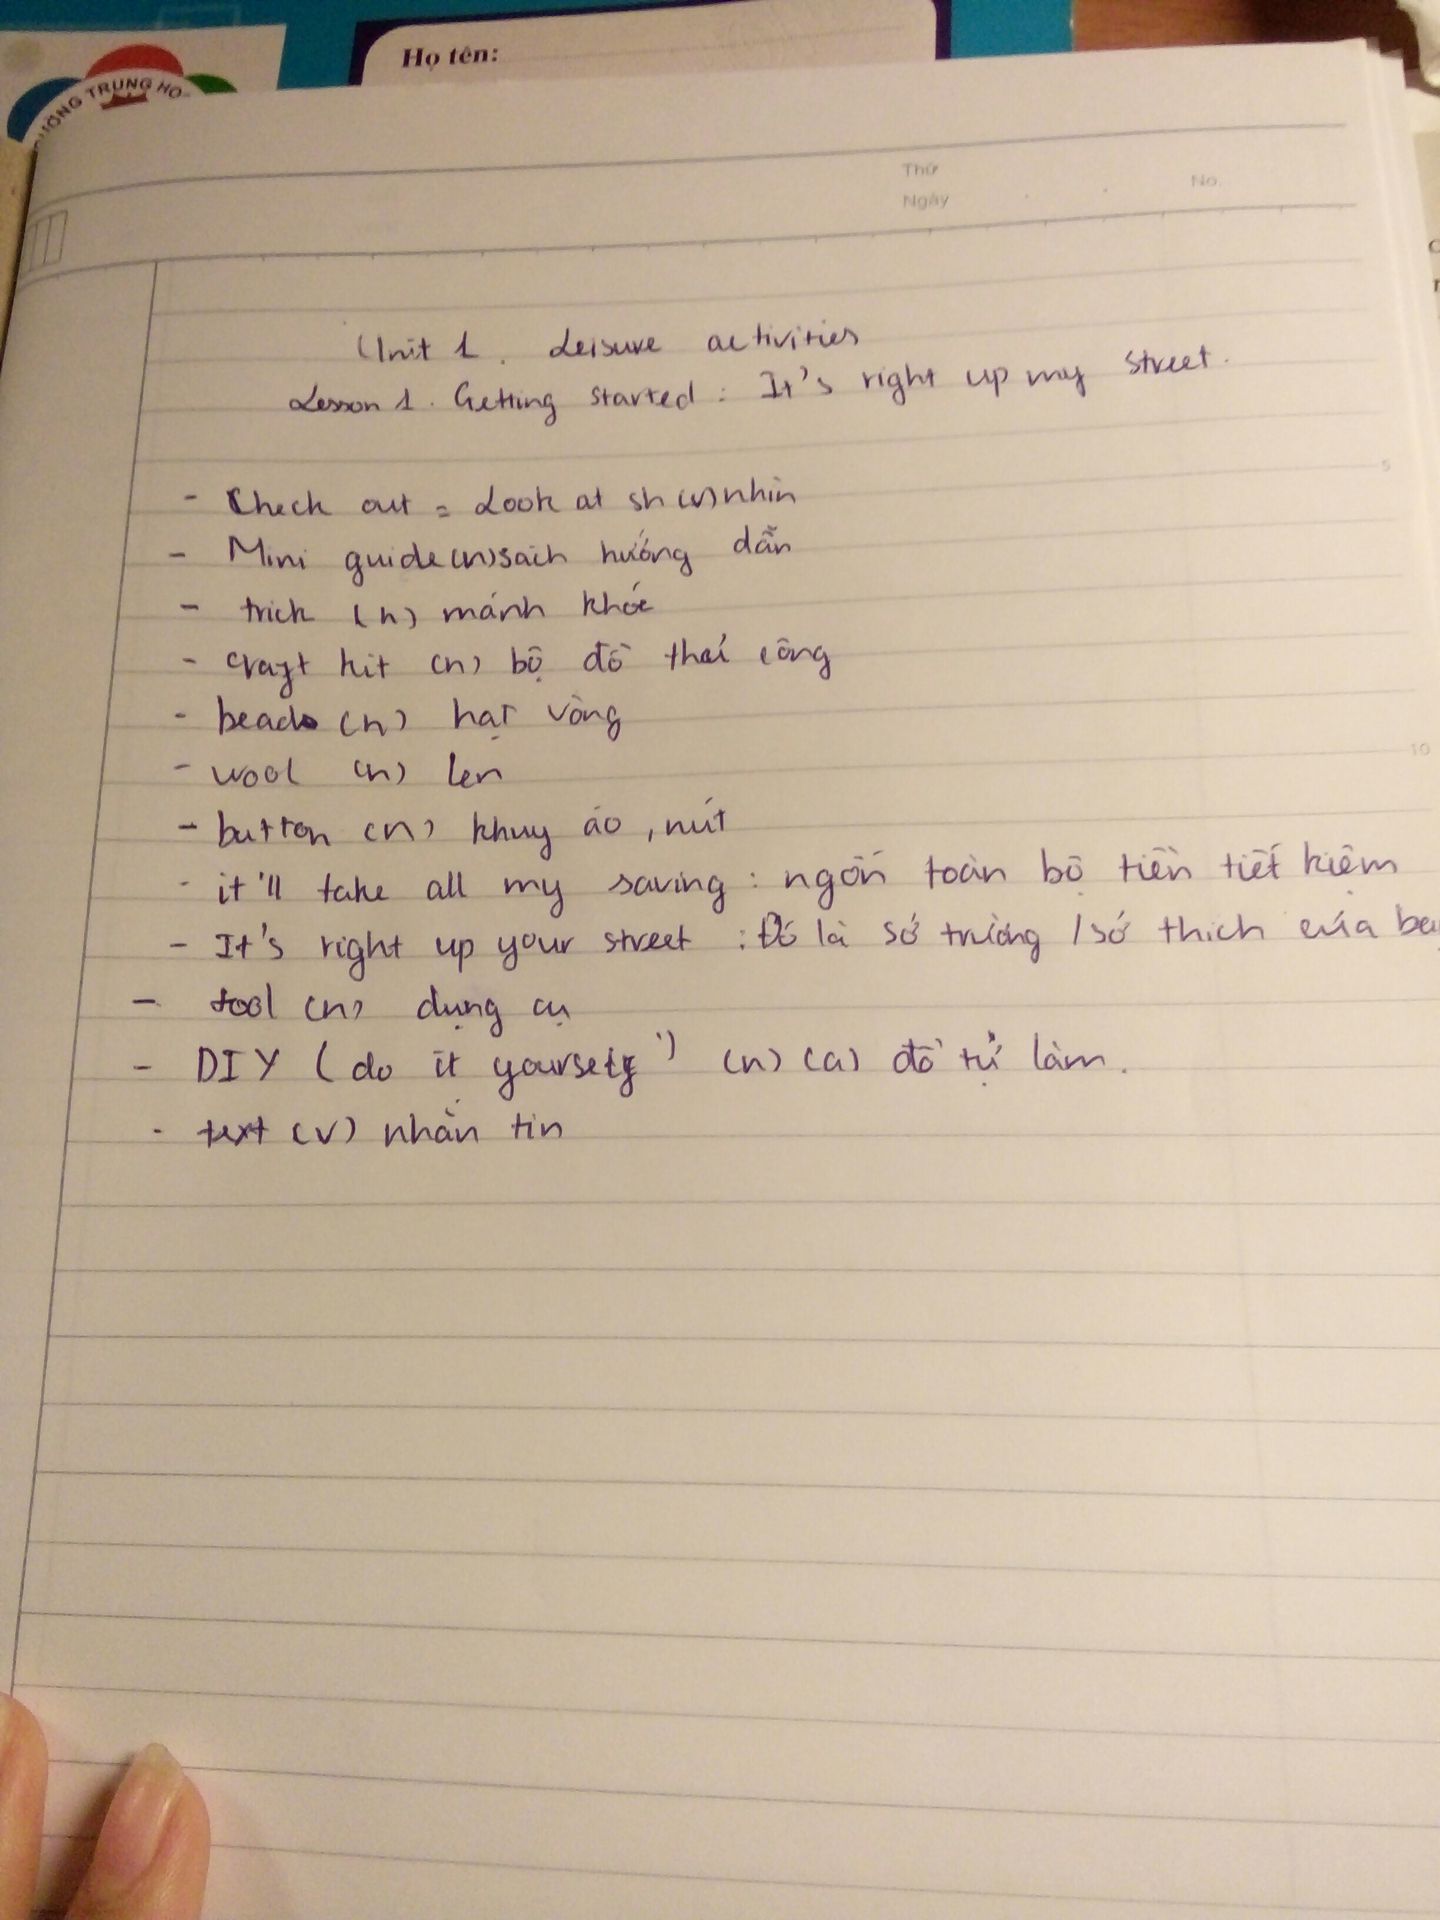 Họ tên:
ƯỜNG TRUNG HỌ
Thứ
Ngày
No.
Unit 1. Leisure activities
Lesson 1. Getting started: It's right up my street.
5
- Check out = Look at sth (v) nhìn
- Mini guide (n) sách hướng dẫn
- trick (n) mánh khóe
- craft kit (n) bộ đồ thủ công
- beads (n) hạt vòng
10
- wool (n) len
- button (n) khuy áo, nút
- it'll take all my saving: ngốn toàn bộ tiền tiết kiệm
- It's right up your street: Đó là sở trường / sở thích của
- tool (n) dụng cụ
- DIY (do it yourself) (n) (a) đồ tự làm.
- text (v) nhắn tin